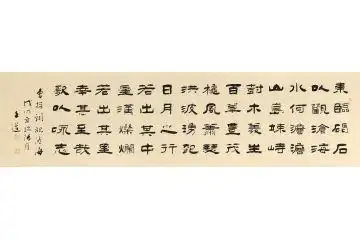 東臨碣石
以觀滄海
水何澹澹
山島竦峙
樹木叢生
百草豐茂
秋風蕭瑟
洪波湧起
日月之行
若出其中
星漢燦爛
若出其里
幸甚至哉
歌以詠志
曹操詩觀滄海